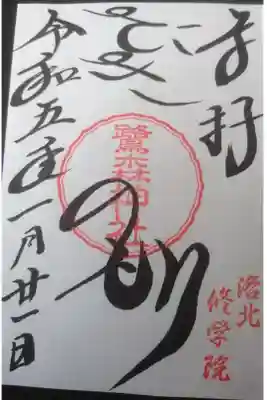 奉拝
洛北
修学院
鷺森神社
令和五年一月廿一日